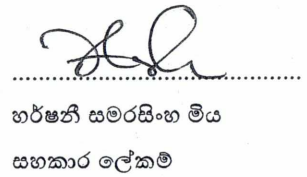 හර්ෂනී සමරසිංහ මිය
සහකාර ලේකම්